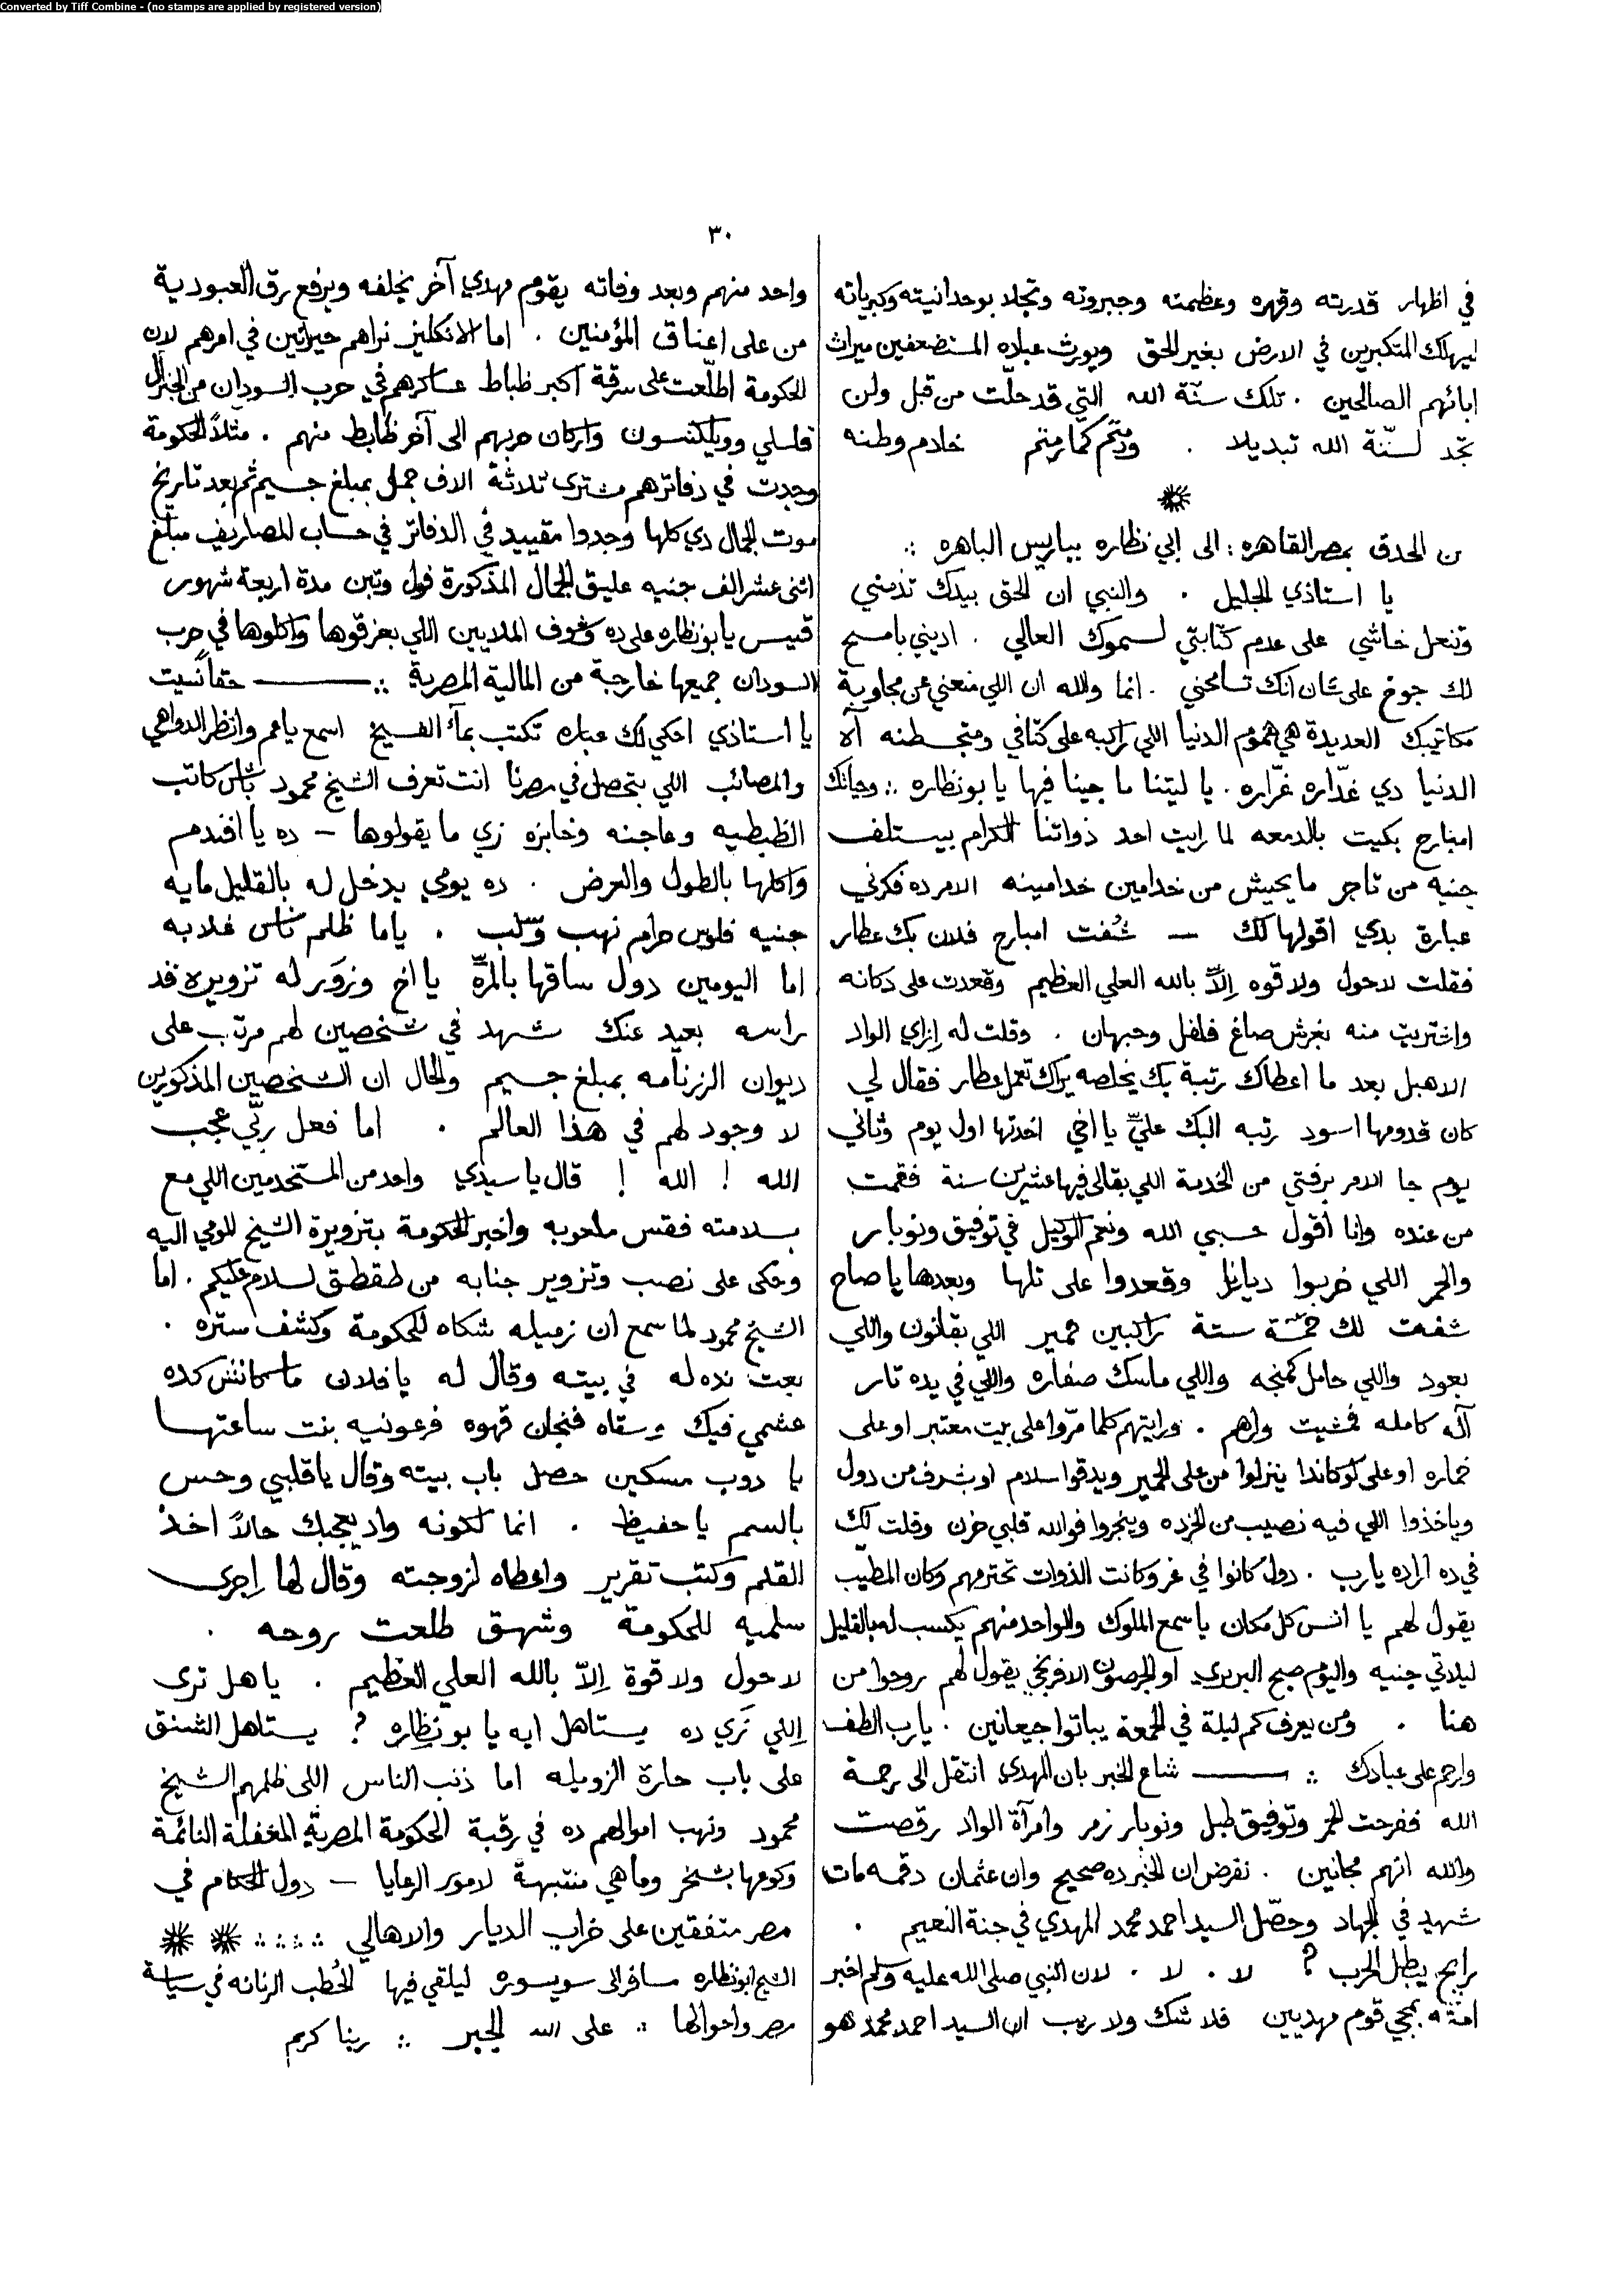 Converted by Tiff Combine - (no stamps are applied by registered version)
٣٠
في اظهار قدرته وقهره وعظمته وجبروته وتجلا بوحدانيته وكبريائه
ليهلك المتكبرين في الارض بغير الحق ويورث عباده المستضعفين ميراث
ابائهم الصالحين . تلك سنّة الله التي قد حلّت من قبل ولن
تجد لسنّة الله تبديلا . ودمتم كما رمتم خادم وطنه
من الحدق بمصر القاهره : الى ابي نظاره بباريس الباهره ∴
يا استاذي الجليل . والنبي ان الحق بيدك تذمني
وتنعل خاشي على عدم كتابتي لسموك العالي . اديني بامسح
لك جوخ على شان انك تسامحني . انما والله ان اللي منعني عن مجاوبة
مكاتيبك العديدة هي هموم الدنيا اللي راكبه على كتافي ومتجطنه آلا
الدنيا دي غدّاره غرّاره . يا ليتنا ما جينا فيها يا بو نظاره ∴ وحياتك
امبارح بكيت بالدمعه لما رايت احد ذواتنا الكرام بيستلف
جنيه من تاجر ما يجيش من خدامين خدامينه الامر ده فكرني
عبارة بدي اقولها لك — شُفت امبارح فلان بك عطار
فقلت لاحول ولا قوه إلاّ بالله العلي العظيم وقعدت على دكانه
واشتريت منه بغرش صاغ فلفل وحبهان . وقلت له إزاي الواد
الاهبل بعد ما اعطاك رتبة بك يخلصه يراك تعمل عطار فقال لي
كان قدومها اسود رتبه البك عليّ يا اخي اخدتها اول يوم وثاني
يوم جا الامر برفتي من الخدمة اللي بقالي فيها عشرين سنة فقمت
من عنده وانا أقول حسبي الله ونعم الوكيل في توفيق ونوبار
والحمر اللي خربوا ديارنا وقعدوا على تلها وبعدها يا صاح
شفت لك خمسة ستة راكبين حمير اللي بقانون واللي
بعود واللي حامل كمنجه واللي ماسك صفاره واللي في يده تار
آلة كامله فمشيت وراهم . ورايتهم كلما مرّوا على بيت معتبر او على
خماره او على لوكاندا ينزلوا من على الحمير ويدقوا سلام او بشرف من دول
وياخذوا اللي فيه نصيب من الخرده وينجروا فوالله قلبي حزن وقلت لك
في ده اراده يا رب . دول كانوا في عز وكانت الذوات تحترمهم وكان المطيب
يقول لهم يا انس كل مكان يا سمع الملوك والواحد منهم يكسب له بالقليل
ليلاتي جنيه واليوم صبح البربري او الجرصون الافرنجي يقول لهم روحوا من
هنا . ومن يعرف كم ليلة في الجمعة يباتوا جيعانين . يا رب الطف
وارحم على عبادك ∴ —— شاع الخبر بان المهدي انتقل الى رحمة
الله ففرحت الحمر وتوفيق طبل ونوبار زمر وامرأة الواد رقصت
والله انهم مجانين . نفرض ان الخبر ده صحيح وان عثمان دقمه مات
شهيد في الجهاد وحصّل السيد احمد محمد المهدي في جنة النعيم .
رايح يبطل الحرب ? لا . لا . لان النبي صلى الله عليه وسلم اخبر
امته بمجي قوم مهديين فلا شك ولا ريب ان السيد احمد محمد هو
واحد منهم وبعد وفاته يقوم مهدي آخر يخلفه ويرفع رق العبودية
من على اعناق المؤمنين . اما الانكليز نراهم حيرانين في امرهم لان
الحكومة اطلّعت على سرقة اكبر ظباط عساكرهم في حرب السودان من الجنرال
ولسلي وويلكنسون واركان حربهم الى آخر ظابط منهم . مثلاً الحكومة
وجدت في دفاترهم مشترى ثلاثة الاف جمل بمبلغ جسيم ثم بعد تاريخ
موت الجمال دي كلها وجدوا مقييد في الدفاتر في حساب المصاريف مبلغ
اثنى عشر الف جنيه عليق الجمال المذكورة فول وتبن مدة اربعة شهور
قييس يا بو نظاره على ده وشوف الملايين اللي بعزقوها واكلوها في حرب
السودان جميعها خارجة من المالية المصرية ∴ —— حقا نسيت
يا استاذي احكي لك عباره تكتب بمآ الفسيخ اسمع يا عم وانظر الدواهي
والمصائب اللي بتحصل في مصرنا انت تعرف الشيخ محمود باش كاتب
الظبطيه وعاجنه وخابزه زي ما يقولوها — ده يا افندم
واكلها بالطول والعرض . ده يومي يدخل له بالقليل مايه
جنيه فلوس حرام نهب وسلب . ياما ظلم ناس غلابه
اما اليومين دول ساقها بالمرّة يا اخ وزوّر له تزويرة قد
راسه بعيد عنك شهد في شخصين لهم مرتب على
ديوان الرزنامه بمبلغ جسيم والحال ان الشخصين المذكورين
لا وجود لهم في هذا العالم . اما فعل ربّي عجب
الله ! الله ! قال يا سيدي واحد من المستخدمين اللي مع
بسلامته فقس ملعوبه واخبر الحكومة بتزويرة الشيخ المومي اليه
وحكى على نصب وتزوير جنابه من طقطق لسلام عليكم . اما
الشيخ محمود لما سمع ان زميله شكاه للحكومة وكشف ستره .
بعت نده له في بيته وقال له يا فلان ما كانش كده
عشمي فيك وسقاه فنجان قهوه فرعونيه بنت ساعتها
يا دوب مسكين حصل باب بيته وقال يا قلبي وحس
بالسم يا حفيظ . انما لكونه واد يعجبك حالاً اخذ
القلم وكتب تقرير واعطاه لزوجته وقال لها إجري
سلميه للحكومة وشهق طلعت روحه .
لاحول ولا قوة إلاّ بالله العلي العظيم . يا هل ترى
إللي زي ده يستاهل ايه يا بو نظاره ? يستاهل الشنق
على باب حارة الزويله اما ذنب الناس اللي ظلمهم الشيخ
محمود ونهب اموالهم ده في رقبة الحكومة المصرية المغفلة النائمة
وكومها بشخر وماهي منتبهة لامور الرعايا — دول الحكام في
مصر متفقين على خراب الديار والاهالي ∴ ∴ ∴
الشيخ ابو نظاره مسافر الى سويسره ليلقي فيها الخُطب الرنانه في سياسة
مصر واحوالها ∴ على الله الجبر ∴ ربنا كريم